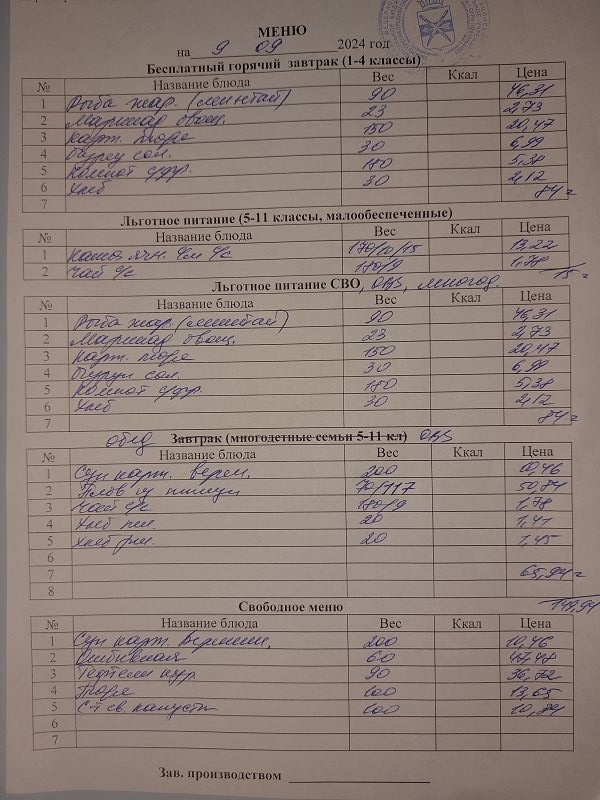 МЕНЮ
на 9 09 2024 год
Бесплатный горячий завтрак (1-4 классы)
№ Название блюда Вес Ккал Цена
1 Рыба жар. (минтай) 90 46,31
2 Маринад овощ. 23 2,73
3 Карт. пюре 150 20,47
4 Огурец сол. 30 6,99
5 Компот с/фр. 180 5,38
6 Хлеб 30 2,12
7 84=
Льготное питание (5-11 классы, малообеспеченные)
№ Название блюда Вес Ккал Цена
1 Каша ячн. с/м с/с 170/10/15 13,22
2 Чай с/с 180/9 1,78
15=
Льготное питание СВО, ОВЗ, многод.
№ Название блюда Вес Ккал Цена
1 Рыба жар. (минтай) 90 46,31
2 Маринад овощ. 23 2,73
3 Карт. пюре 150 20,47
4 Огурец сол. 30 6,99
5 Компот с/фр. 180 5,38
6 Хлеб 30 2,12
7 84=
обед Завтрак (многодетные семьи 5-11 кл) ОВЗ
№ Название блюда Вес Ккал Цена
1 Суп карт. верм. 200 10,46
2 Плов 70/117 50,84
3 Чай с/с 180/9 1,78
4 Хлеб пш. 20 1,41
5 Хлеб рж. 20 1,45
6
7 65,94=
8
149,94
Свободное меню
№ Название блюда Вес Ккал Цена
1 Суп карт. вермиш. 200 10,46
2 Отбивная 60 47,48
3 Тефтели 90 36,72
4 Пюре 100 13,65
5 С-т св. капусты 100 10,84
6
7
Зав. производством